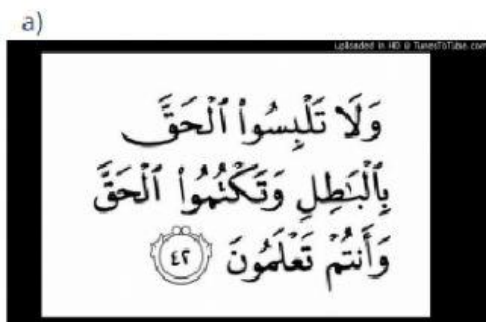 a)
uploaded in HD @ TunesToTube.com
وَلَا تَلْبِسُوا۟ ٱلْحَقَّ
بِٱلْبَـٰطِلِ وَتَكْتُمُوا۟ ٱلْحَقَّ
وَأَنتُمْ تَعْلَمُونَ ٤٢